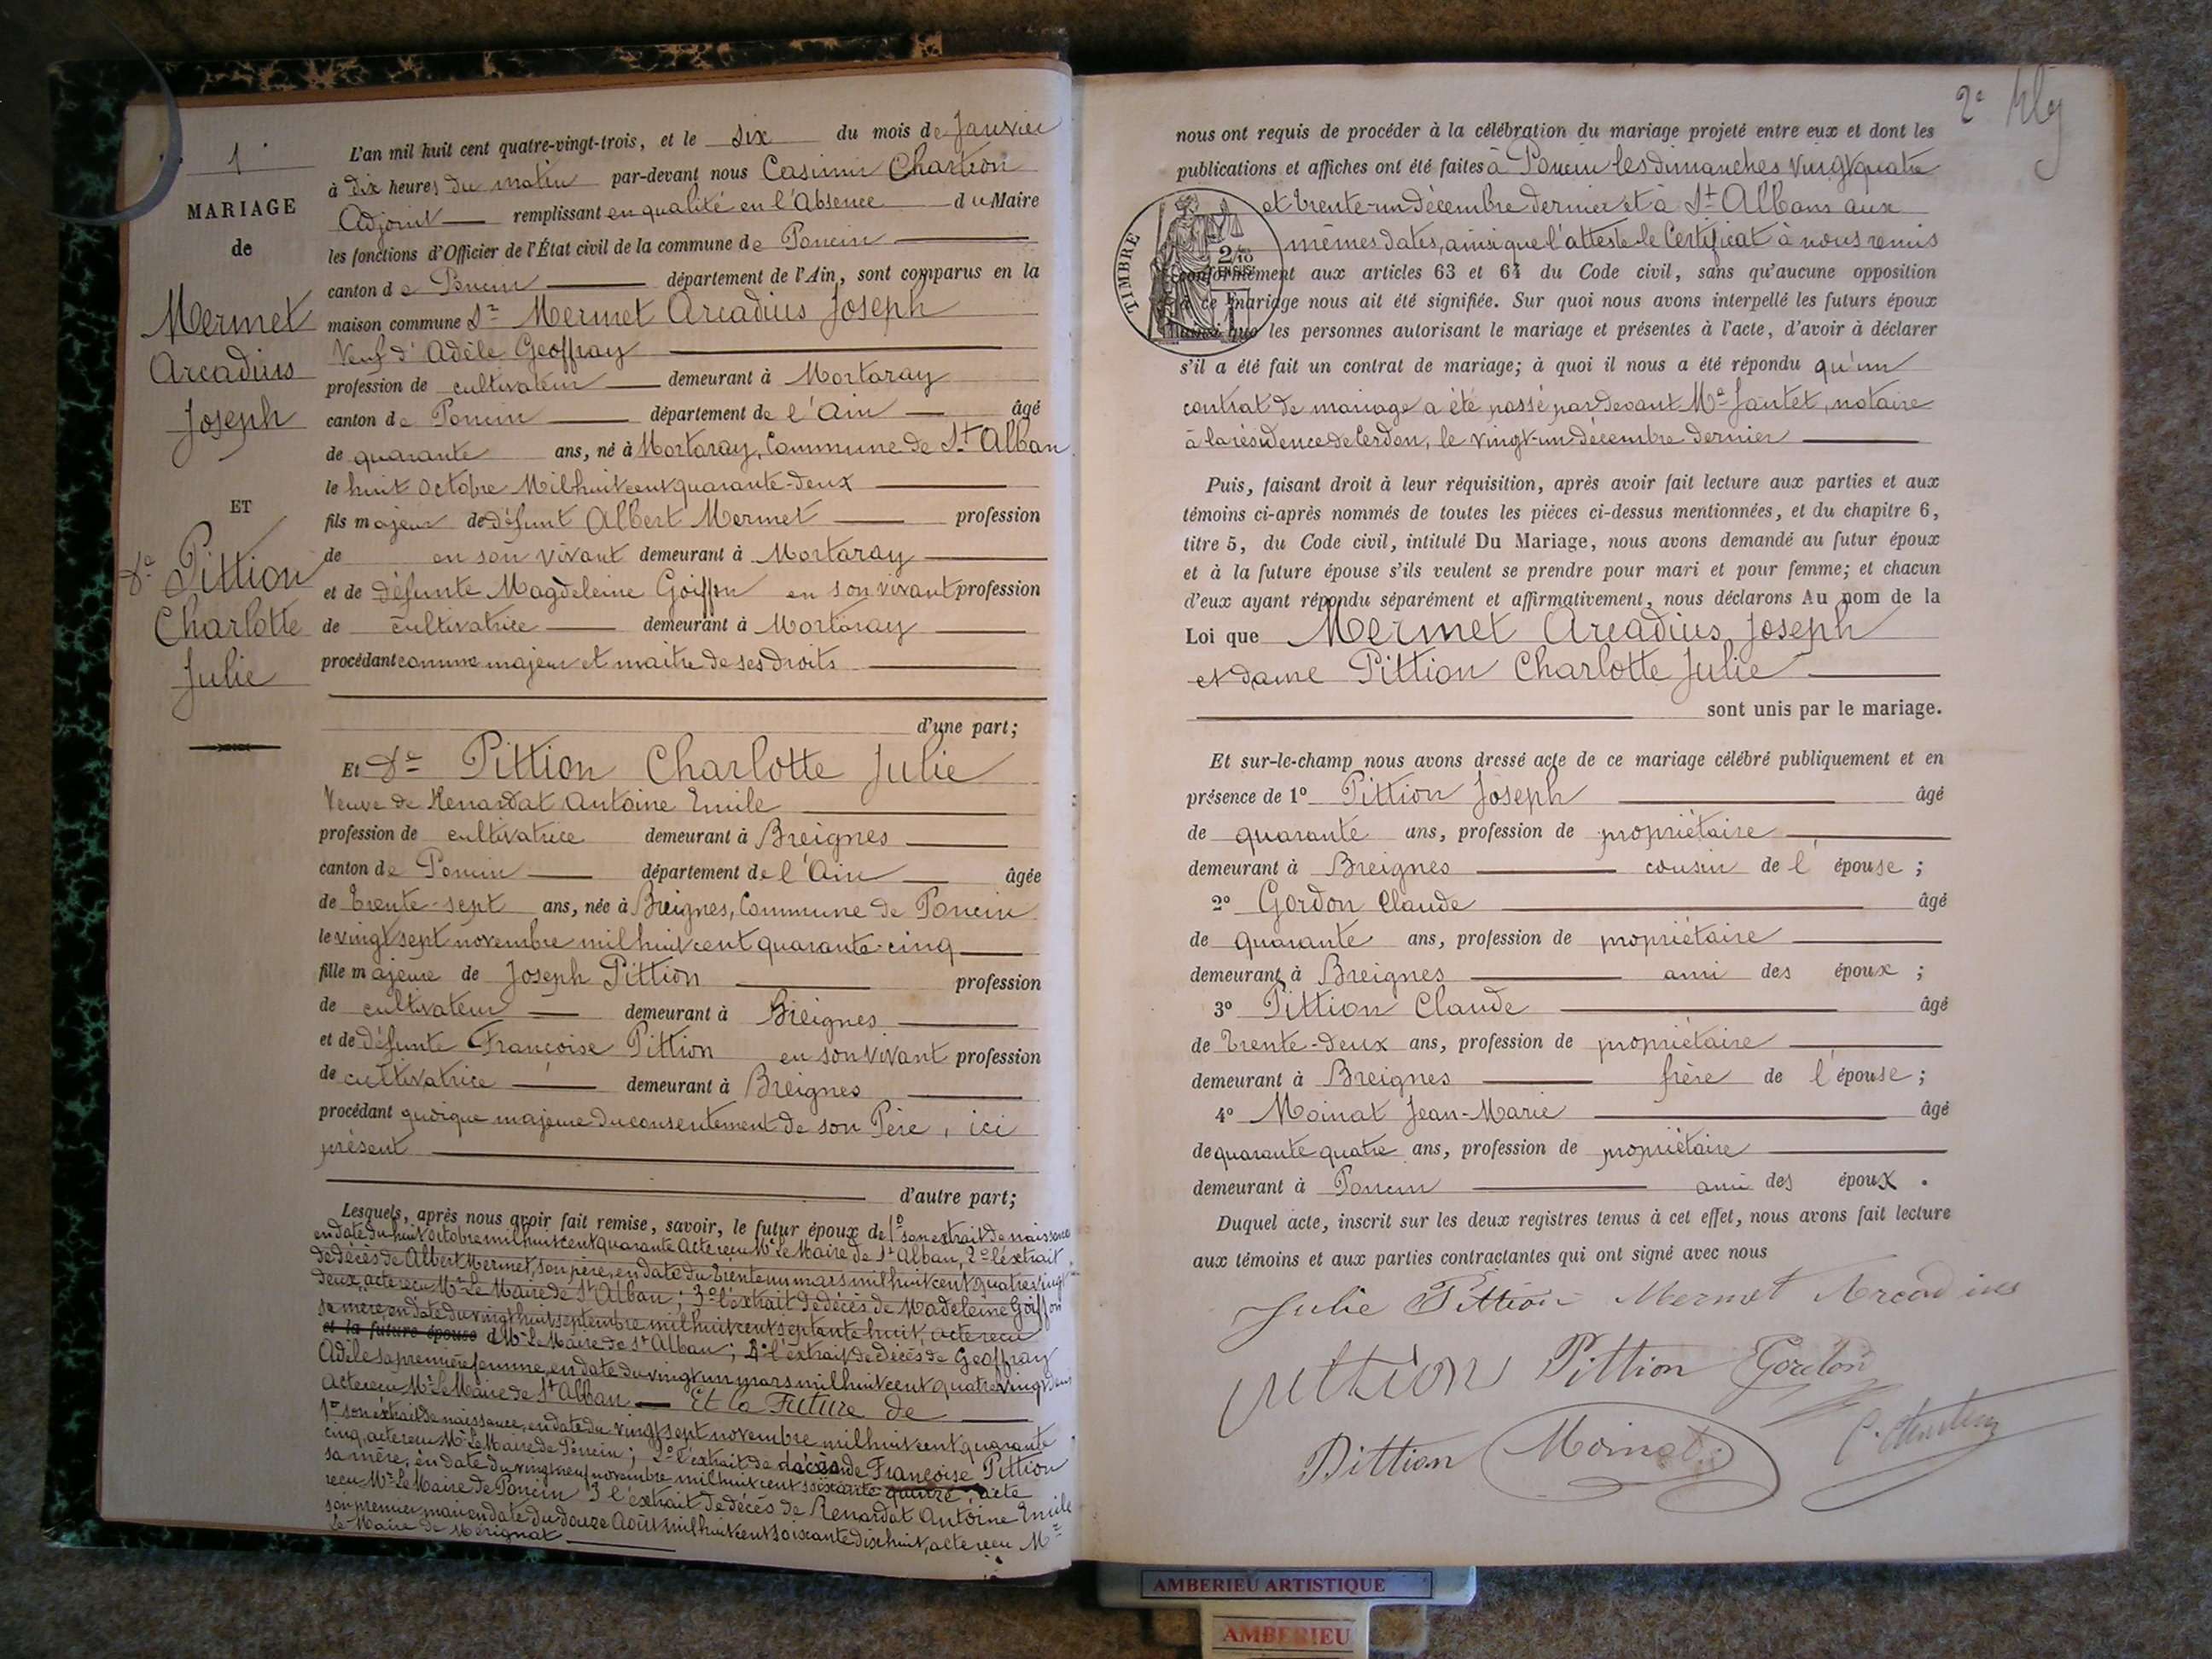 1
MARIAGE
de
Mermet
Arcadius
Joseph
ET
de Pittion
Charlotte
Julie
L'an mil huit cent quatre-vingt-trois, et le six du mois de Janvier
à dix heures du matin par-devant nous Casimir
Adjoint remplissant en qualité en l'Absence du Maire
les fonctions d'Officier de l'État civil de la commune de Poncin
canton de Poncin département de l'Ain, sont comparus en la
maison commune Sr Mermet Arcadius Joseph
Veuf d'Adèle Geoffray
profession de cultivateur demeurant à Mortaray
canton de Poncin département de l'Ain âgé
de quarante ans, né à Mortaray, Commune de St Alban
le huit Octobre Mil huit cent quarante-deux
fils majeur de défunt Albert Mermet profession
de en son vivant demeurant à Mortaray
et de défunte Magdeleine Goiffon en son vivant profession
de cultivatrice demeurant à Mortaray
procédant comme majeur et maitre de ses droits
d'une part;
Et de Pittion Charlotte Julie
Veuve de Renardat Antoine Emile
profession de cultivatrice demeurant à Breignes
canton de Poncin département de l'Ain âgée
de trente-sept ans, née à Breignes, Commune de Poncin
le vingt sept novembre mil huit cent quarante-cinq
fille majeure de Joseph Pittion profession
de cultivateur demeurant à Breignes
et de défunte Françoise Pittion en son vivant profession
de cultivatrice demeurant à Breignes
procédant quoique majeure du consentement de son Père, ici
présent
d'autre part;
Lesquels, après nous avoir fait remise, savoir, le futur époux de 1o son extrait de naissance
en date du huit octobre mil huit cent quarante Acte reçu Mr Le Maire de St Alban, 2o l'extrait
de décès de Albert Mermet, son père, en date du trente un mars mil huit cent quatre vingt
deux, acte reçu Mr Le Maire de St Alban; 3o l'extrait de décès de Madeleine Goiffon
sa mère, en date du vingt huit septembre mil huit cent septante huit, acte reçu
et la future épouse d Mr Le Maire de St Alban; 4o l'extrait de décès de Geoffray
Adèle sa première femme, en date du vingt un mars mil huit cent quatre vingt deux
Acte reçu Mr Le Maire de St Alban Et la Future de
1o son extrait de naissance, en date du vingt sept novembre mil huit cent quarante
cinq, acte reçu Mr Le Maire de Poncin; 2o l'extrait de décès de Françoise Pittion
sa mère, en date du vingt neuf novembre mil huit cent soixante quatre, acte
reçu Mr Le Maire de Poncin 3 l'extrait de décès de Renardat Antoine Emile
son premier mari en date du douze Août mil huit cent soixante dix huit, acte reçu Mr
Le Maire de Mérignat
2e
nous ont requis de procéder à la célébration du mariage projeté entre eux et dont les
publications et affiches ont été faites à Poncin les dimanches vingt quatre
et trente-un décembre dernier et à St Alban aux
mêmes dates, ainsi que l'atteste le Certificat à nous remis
TIMBRE
2/10
EN SUS
conformément aux articles 63 et 64 du Code civil, sans qu'aucune opposition
à ce mariage nous ait été signifiée. Sur quoi nous avons interpellé les futurs époux
ainsi que les personnes autorisant le mariage et présentes à l'acte, d'avoir à déclarer
s'il a été fait un contrat de mariage; à quoi il nous a été répondu qu'un
contrat de mariage a été passé par devant Me Jantet, notaire
à la résidence de Cerdon, le vingt-un décembre dernier
Puis, faisant droit à leur réquisition, après avoir fait lecture aux parties et aux
témoins ci-après nommés de toutes les pièces ci-dessus mentionnées, et du chapitre 6,
titre 5, du Code civil, intitulé Du Mariage, nous avons demandé au futur époux
et à la future épouse s'ils veulent se prendre pour mari et pour femme; et chacun
d'eux ayant répondu séparément et affirmativement, nous déclarons Au nom de la
Loi que Mermet Arcadius Joseph
et dame Pittion Charlotte Julie
sont unis par le mariage.
Et sur-le-champ nous avons dressé acte de ce mariage célébré publiquement et en
présence de 1o Pittion Joseph âgé
de quarante ans, profession de propriétaire
demeurant à Breignes cousin de l'épouse;
2o Gordon Claude âgé
de quarante ans, profession de propriétaire
demeurant à Breignes ami des époux;
3o Pittion Claude âgé
de trente-deux ans, profession de propriétaire
demeurant à Breignes frère de l'épouse;
4o Moinat Jean-Marie âgé
de quarante quatre ans, profession de propriétaire
demeurant à Poncin ami des époux.
Duquel acte, inscrit sur les deux registres tenus à cet effet, nous avons fait lecture
aux témoins et aux parties contractantes qui ont signé avec nous
Julie Pittion Mermet Arcadius
Pittion Pittion Gordon
Pittion Moinat
AMBERIEU ARTISTIQUE
AMBERIEU